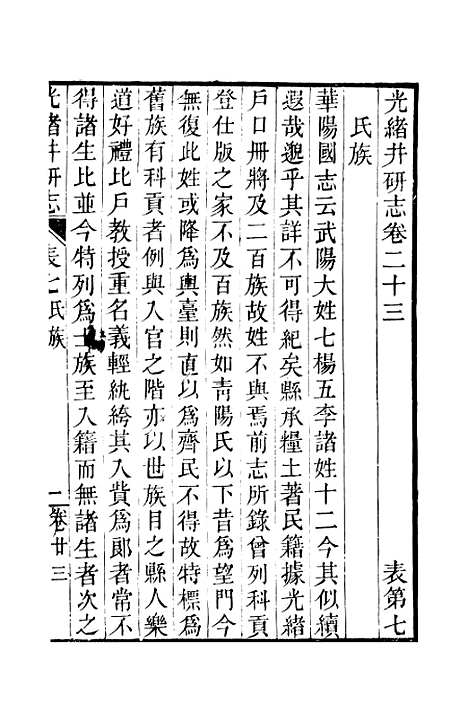 光緒井研志卷二十三　表第七
氏族
華陽國志云武陽大姓七楊五李諸姓十二今其似續
遐哉邈乎其詳不可得紀矣縣承糧土著民籍據光緒
戶口冊將及二百族故姓不與焉前志所錄曾列科貢
登仕版之家不及百族然如靑陽氏以下昔爲望門今
無復此姓或降爲輿臺則直以爲齊民不得故特標爲
舊族有科貢者例與入官之階亦以世族目之縣人樂
道好禮比戶敎授重名義輕紈綺其入貲爲郞者常不
得諸生比並今特列爲士族至入籍而無諸生者次之
光緒井研志　表七氏族　一　卷廿三